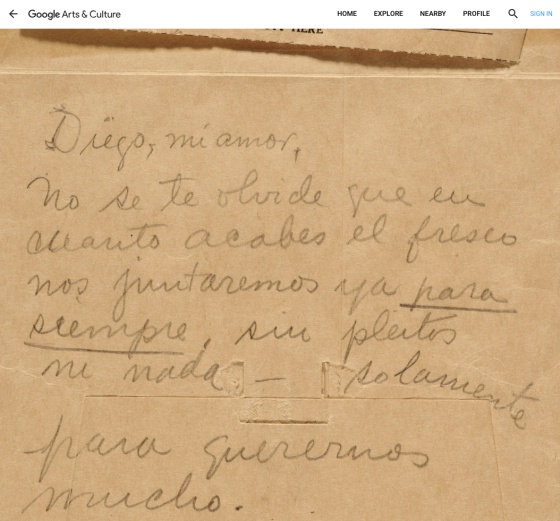 Google Arts & Culture HOME EXPLORE NEARBY PROFILE SIGN IN
HERE
Diego, mi amor,
No se te olvide que en
cuanto acabes el fresco
nos juntaremos ya para
siempre, sin pleitos
ni nada — solamente
para querernos
mucho.